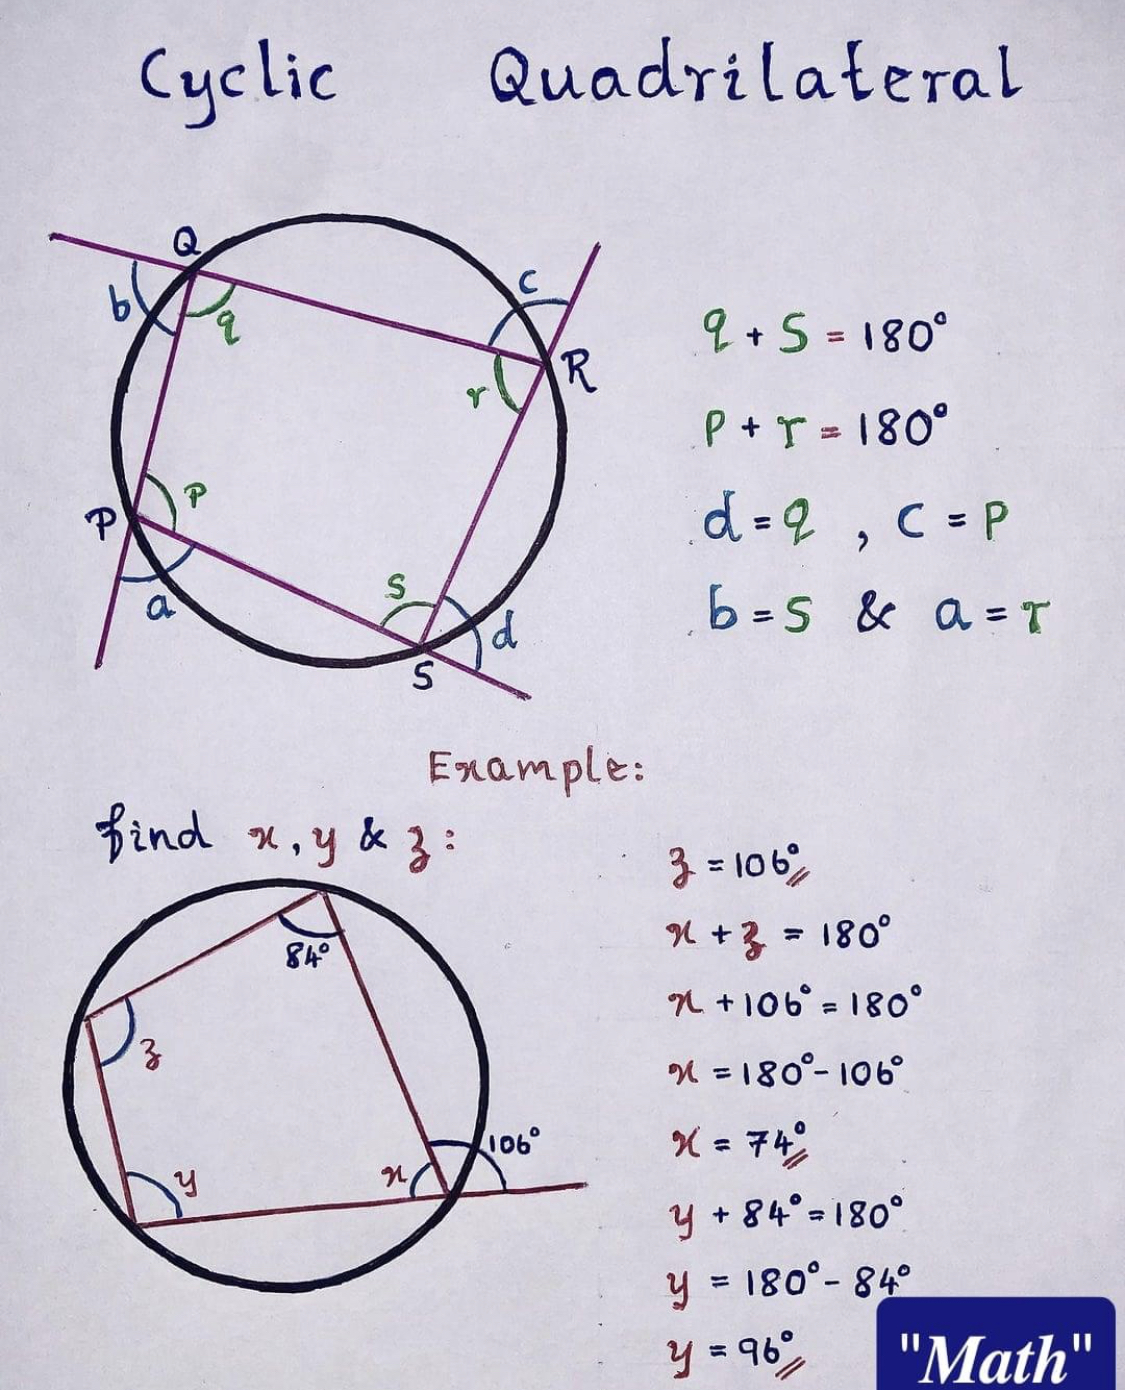 Cyclic Quadrilateral
Q
b
q
c
R
r
P
p
a
s
d
S
q + S = 180°
P + r = 180°
d = q , c = P
b = S & a = r
Example:
find x, y & z:
84°
z
y
x
106°
z = 106°
x + z = 180°
x + 106° = 180°
x = 180° - 106°
x = 74°
y + 84° = 180°
y = 180° - 84°
y = 96°
"Math"